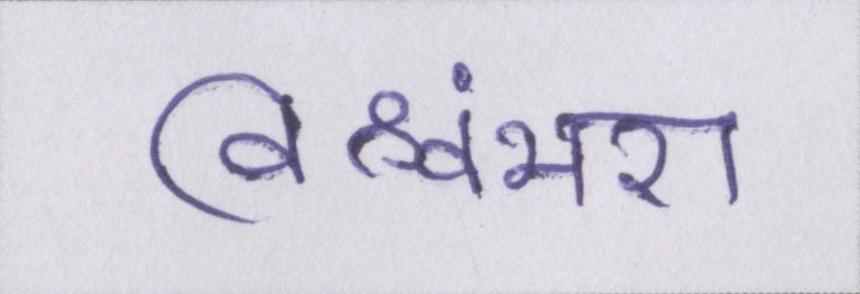 विश्वंभरा